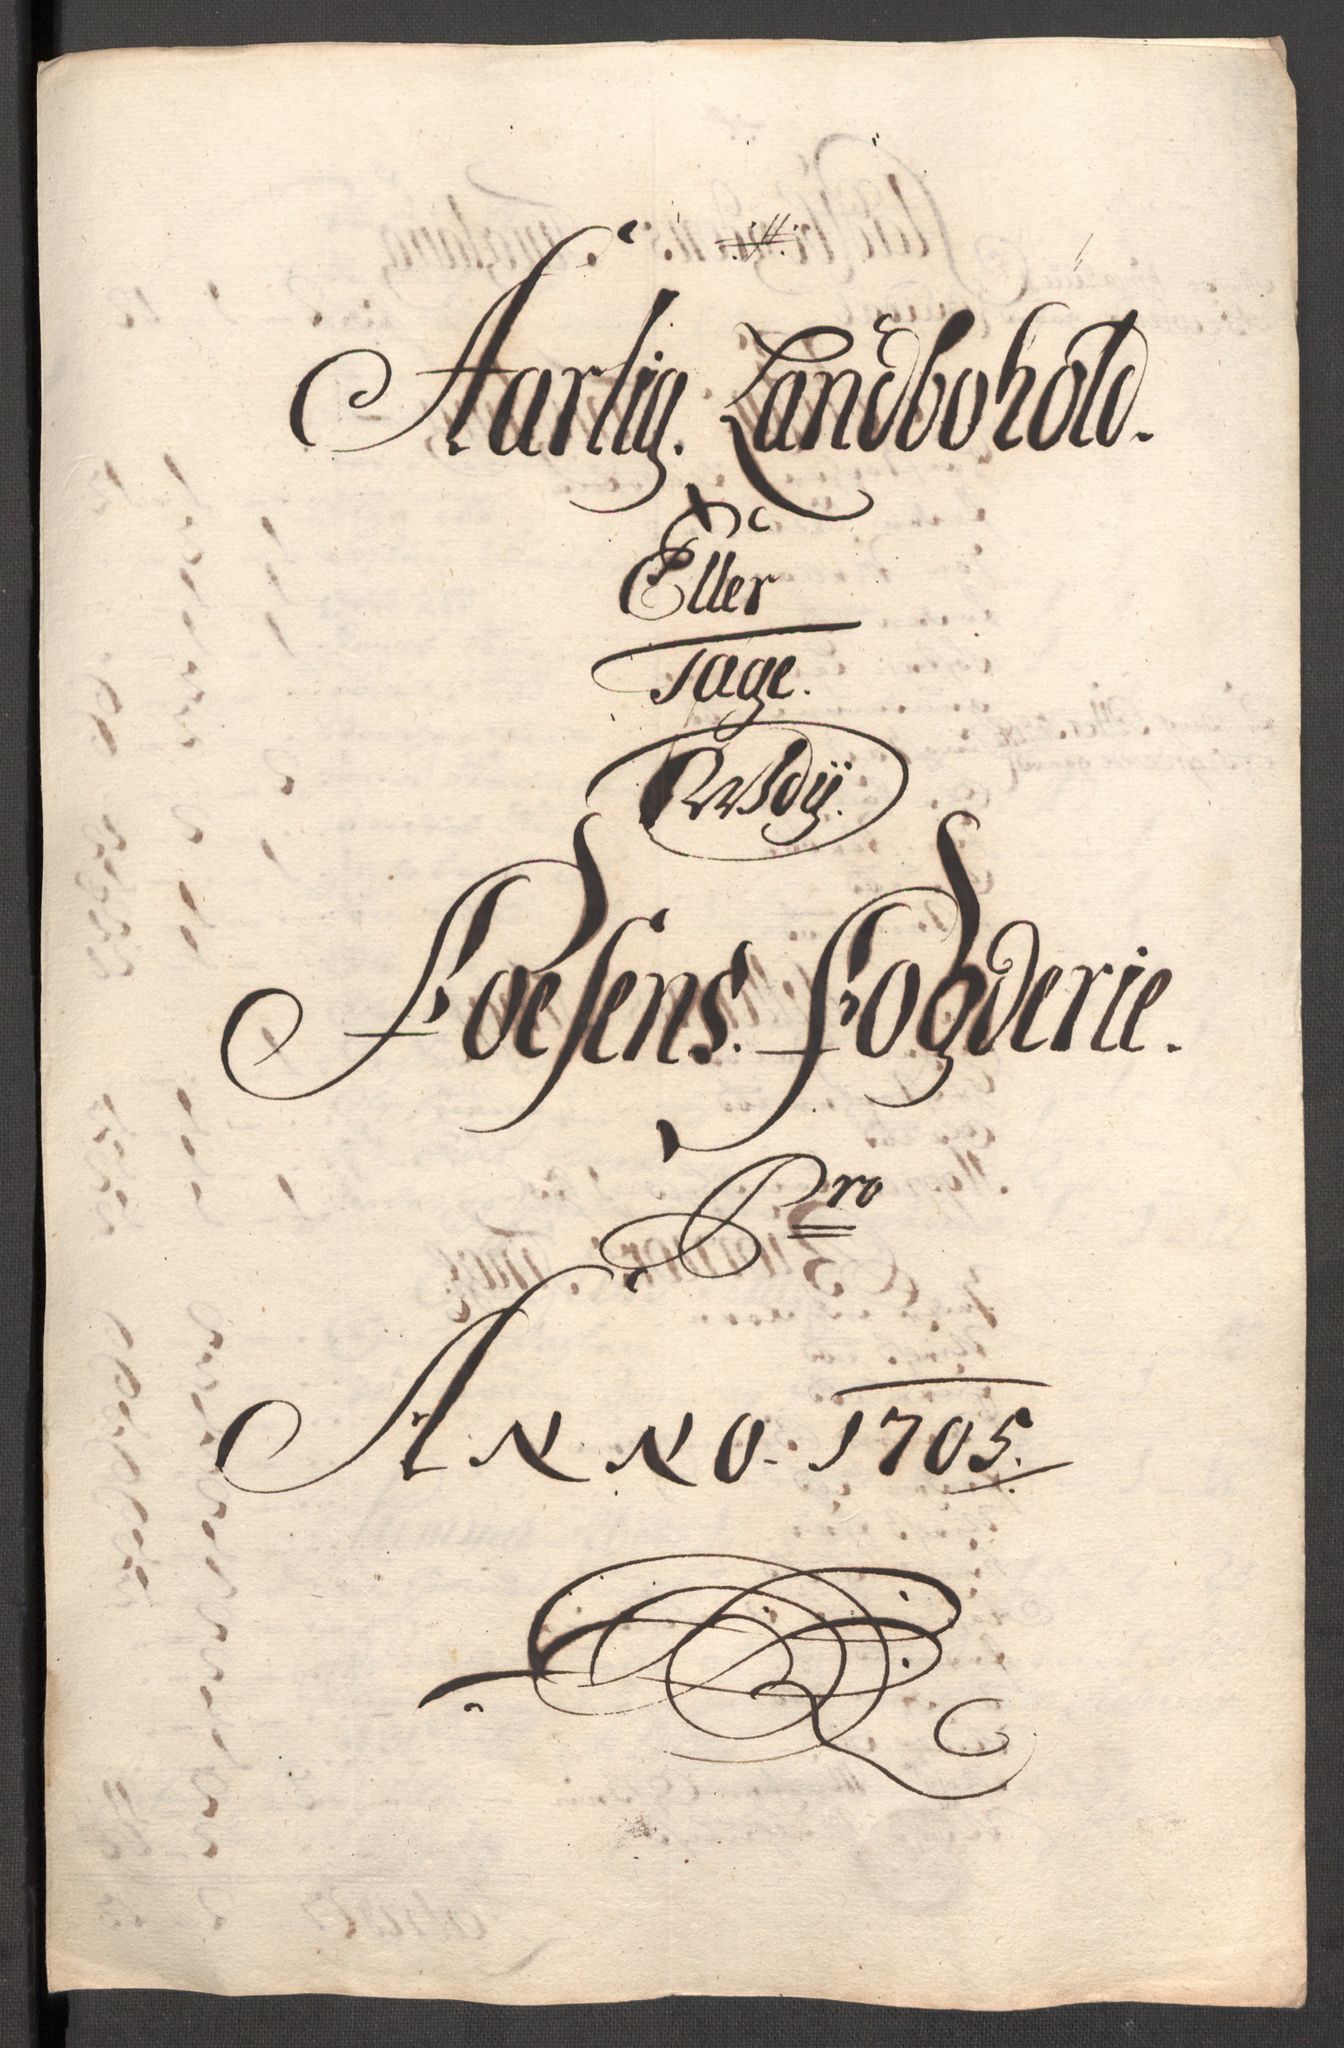 N.
Aarlig. Landbohold.
Eller
Tage.
Udj.
Foesens. Fogderie.
Pro
Anno. 1705.